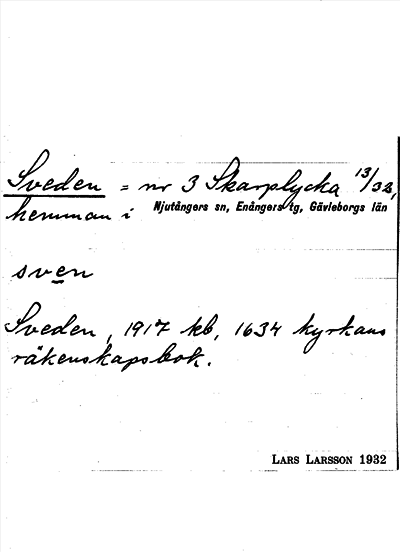 Sveden = nr 3 Skarplycka 13/32,
hemman i Njutångers sn, Enångers tg, Gävleborgs län
sven
Sveden, 1917 kb, 1634 kyrkans
räkenskapsbok.
LARS LARSSON 1932